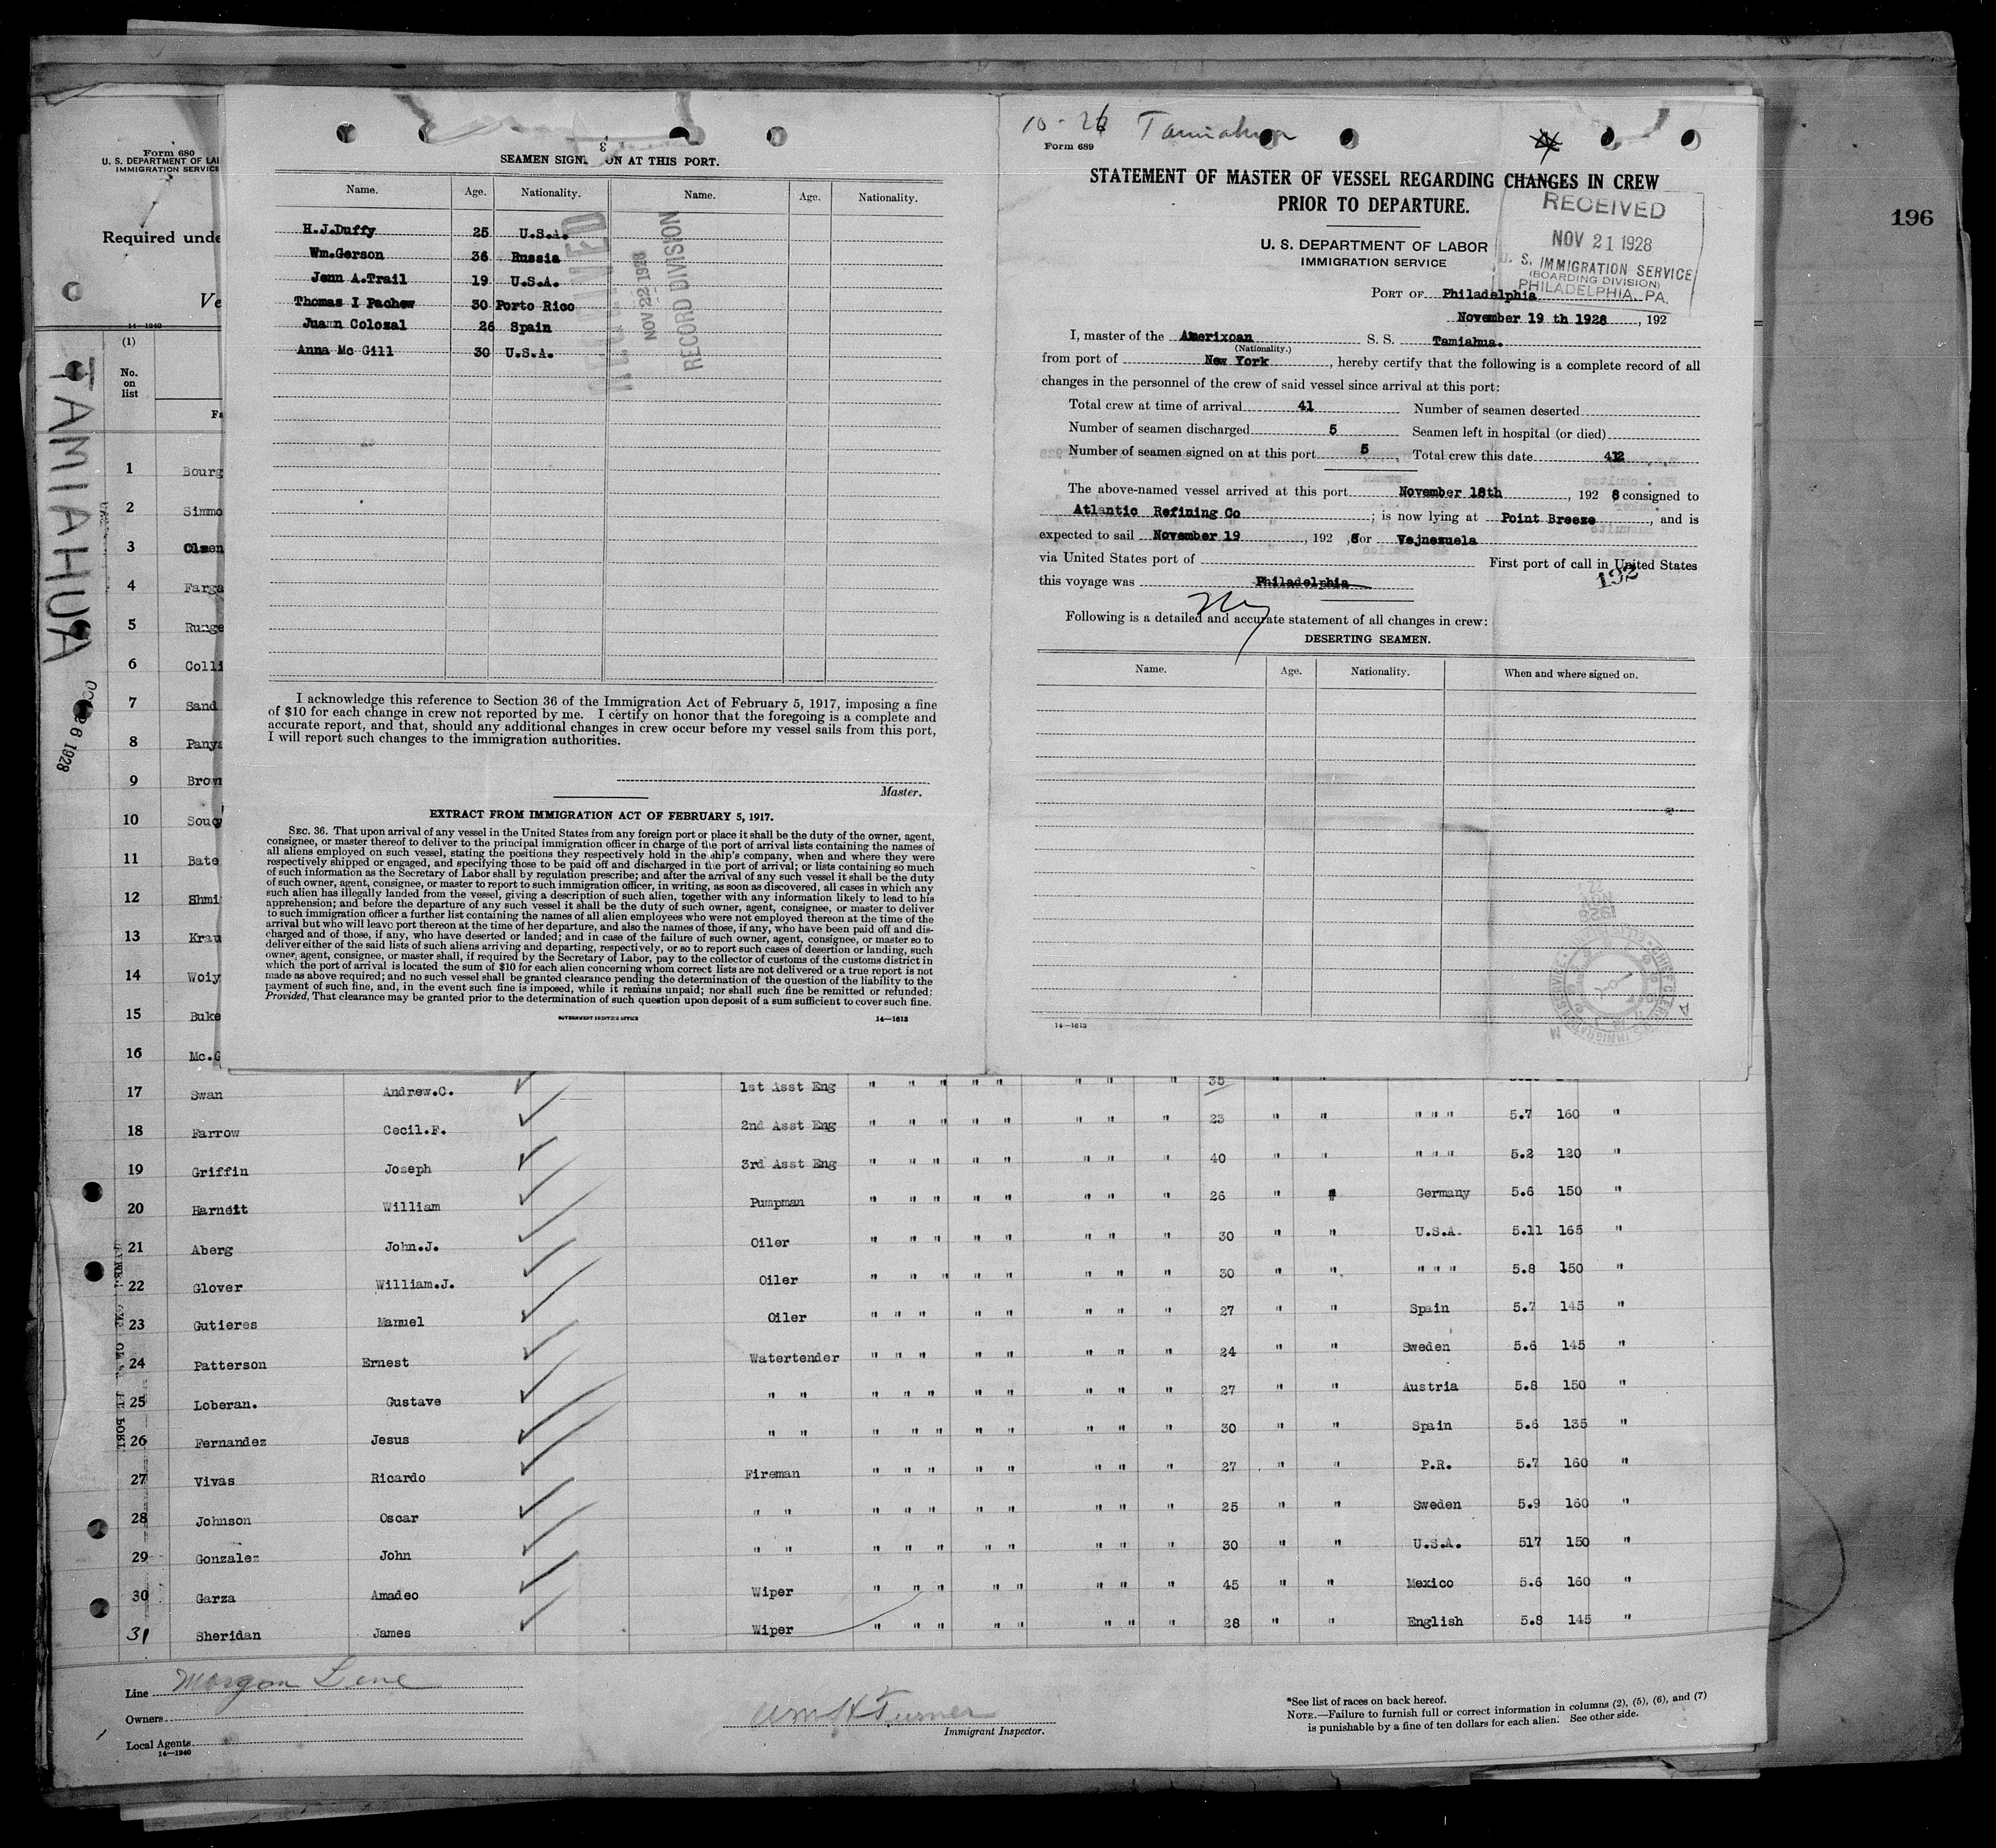 196
Form 680
U. S. DEPARTMENT OF LA
IMMIGRATION SERVICE
Required unde
Ve
14—1240
(1)
No.
on
list
Fa
TAMIAHUA
OCT 26 1928
1 Bourg
2 Simmo
3 Olsen
4 Farga
5 Runge
6 Colli
7 Sand
8 Panya
9 Brow
10 Souq
11 Bate
12 Shmi
13 Krau
14 Woiy
15 Buke
16 Mc.G
3
SEAMEN SIGN ON AT THIS PORT.
Name. Age. Nationality. Name. Age. Nationality.
H.J.Duffy 25 U.S.A.
Wm.Gerson 36 Russia
Jenn A.Trail 19 U.S.A.
Thomas I Pachew 30 Porto Rico
Juann Colozal 26 Spain
Anna Mc Gill 30 U.S.A.
NOV 22 1928
RECORD DIVISION
I acknowledge this reference to Section 36 of the Immigration Act of February 5, 1917, imposing a fine
of $10 for each change in crew not reported by me. I certify on honor that the foregoing is a complete and
accurate report, and that, should any additional changes in crew occur before my vessel sails from this port,
I will report such changes to the immigration authorities.
Master.
EXTRACT FROM IMMIGRATION ACT OF FEBRUARY 5, 1917.
SEC. 36. That upon arrival of any vessel in the United States from any foreign port or place it shall be the duty of the owner, agent,
consignee, or master thereof to deliver to the principal immigration officer in charge of the port of arrival lists containing the names of
all aliens employed on such vessel, stating the positions they respectively hold in the ship's company, when and where they were
respectively shipped or engaged, and specifying those to be paid off and discharged in the port of arrival; or lists containing so much
of such information as the Secretary of Labor shall by regulation prescribe; and after the arrival of any such vessel it shall be the duty
of such owner, agent, consignee, or master to report to such immigration officer, in writing, as soon as discovered, all cases in which any
such alien has illegally landed from the vessel, giving a description of such alien, together with any information likely to lead to his
apprehension; and before the departure of any such vessel it shall be the duty of such owner, agent, consignee, or master to deliver
to such immigration officer a further list containing the names of all alien employees who were not employed thereon at the time of the
arrival but who will leave port thereon at the time of her departure, and also the names of those, if any, who have been paid off and dis-
charged and of those, if any, who have deserted or landed; and in case of the failure of such owner, agent, consignee, or master so to
deliver either of the said lists of such aliens arriving and departing, respectively, or so to report such cases of desertion or landing, such
owner, agent, consignee, or master shall, if required by the Secretary of Labor, pay to the collector of customs of the customs district in
which the port of arrival is located the sum of $10 for each alien concerning whom correct lists are not delivered or a true report is not
made as above required; and no such vessel shall be granted clearance pending the determination of the question of the liability to the
payment of such fine, and, in the event such fine is imposed, while it remains unpaid; nor shall such fine be remitted or refunded:
Provided, That clearance may be granted prior to the determination of such question upon deposit of a sum sufficient to cover such fine.
GOVERNMENT PRINTING OFFICE 14—1613
10-26 Tamiahua
Form 689
STATEMENT OF MASTER OF VESSEL REGARDING CHANGES IN CREW
PRIOR TO DEPARTURE.
RECEIVED
NOV 21 1928
U. S. IMMIGRATION SERVICE
(BOARDING DIVISION)
PHILADELPHIA, PA.
U. S. DEPARTMENT OF LABOR
IMMIGRATION SERVICE
PORT OF Philadelphia
November 19 th 1928, 192
I, master of the Amerixcan S. S. Tamiahua.
(Nationality.)
from port of New York, hereby certify that the following is a complete record of all
changes in the personnel of the crew of said vessel since arrival at this port:
Total crew at time of arrival 41 Number of seamen deserted
Number of seamen discharged 5 Seamen left in hospital (or died)
Number of seamen signed on at this port 5, Total crew this date 412
The above-named vessel arrived at this port November 18th, 192 8 consigned to
Atlantic Refining Co; is now lying at Point Breeze, and is
expected to sail November 19, 192 ,8for Vejnezuela
via United States port of First port of call in United States
this voyage was Philadelphia
192
Ny
Following is a detailed and accurate statement of all changes in crew:
DESERTING SEAMEN.
Name. Age. Nationality. When and where signed on.
14—1613
17 Swan Andrew.C. 1st Asst Eng " " " " " " " " 35 " "
18 Farrow Cecil.F. 2nd Asst Eng " " " " " " " " 23 " " " " " 5.7 160 "
19 Griffin Joseph 3rd Asst Eng " " " " " " " " 40 " " " " " 5.2 120 "
20 Harneit William Pumpman " " " " " " " " 26 " " Germany 5.6 150 "
21 Aberg John.J. Oiler " " " " " " " " 30 " " U.S.A. 5.11 165 "
22 Glover William.J. Oiler " " " " " " " " 30 " " " " " 5.8 150 "
23 Gutieres Manuel Oiler " " " " " " " " 27 " " Spain 5.7 145 "
24 Patterson Ernest Watertender " " " " " " " " 24 " " Sweden 5.6 145 "
25 Loberan. Gustave " " " " " " " " " " 27 " " Austria 5.8 150 "
26 Fernandez Jesus " " " " " " " " " " 30 " " Spain 5.6 135 "
27 Vivas Ricardo Fireman " " " " " " " " 27 " " P.R. 5.7 160 "
28 Johnson Oscar " " " " " " " " " " 25 " " Sweden 5.9 160 "
29 Gonzalez John " " " " " " " " " " 30 " " U.S.A. 517 150 "
30 Garza Amadeo Wiper " " " " " " " " 45 " " Mexico 5.6 160 "
31 Sheridan James Wiper " " " " " " " " 28 " " English 5.8 145 "
Line Morgan Line
Owners
Local Agents
14—1240
Wm H Turner
Immigrant Inspector.
*See list of races on back hereof.
NOTE.—Failure to furnish full or correct information in columns (2), (5), (6), and (7)
is punishable by a fine of ten dollars for each alien. See other side.